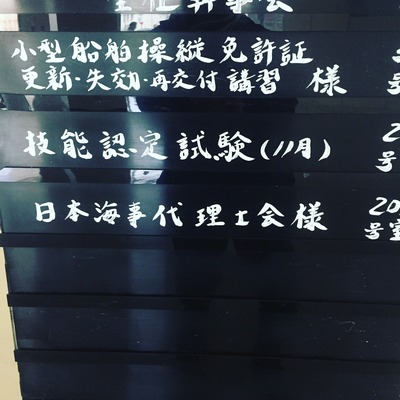 小型船舶操縦免許証
更新・失効・再交付講習 様
号
技能認定試験(11月)
2
号
日本海事代理士会様
20
号室